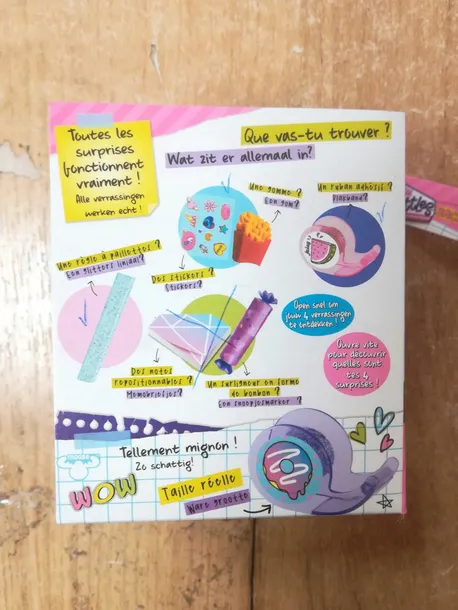 Toutes les
surprises
fonctionnent
vraiment !
Alle verrassingen
werken echt !
Que vas-tu trouver ?
Wat zit er allemaal in?
Une gomme ?
Een gom?
Un ruban adhésif ?
Plakband?
Une règle à paillettes ?
Een glitters liniaal?
Des stickers ?
Stickers?
Open snel om
jouw 4 verrassingen
te ontdekken !
Ouvre vite
pour découvrir
quelles sont
tes 4
surprises !
Des notes
repositionnables ?
Memobriefjes?
Un surligneur en forme
de bonbon ?
Een snoepjesmarker ?
Tellement mignon !
Zo schattig!
WOW
Taille réelle
Ware grootte